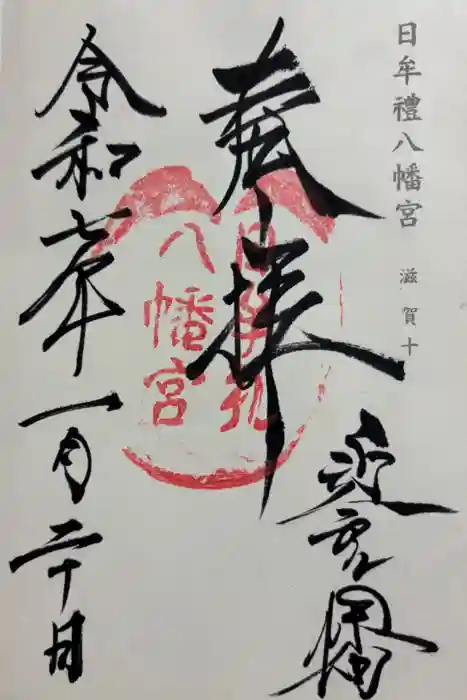 日牟禮八幡宮 滋賀十
奉拝
近江國
日牟礼
八幡宮
令和七年一月二十日